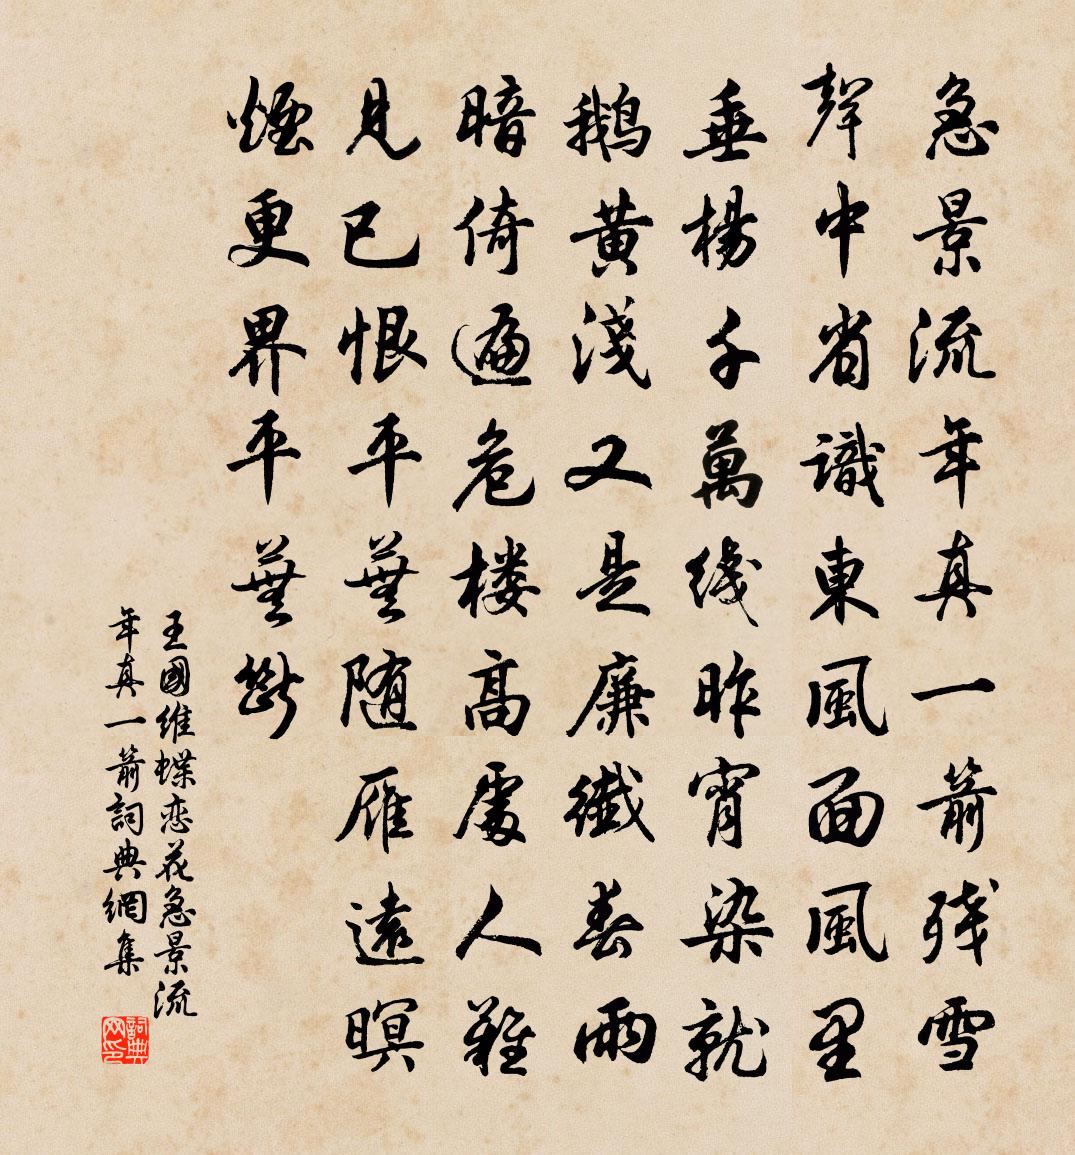 急景流年真一箭残雪
聲中省識東風面風里
垂楊千萬线昨宵染就
鹅黄淺又是廉纖春雨
暗倚遍危楼高處人難
見已恨平蕪随雁遠暝
煙更界平蕪斷
王國維蝶恋花急景流
年真一箭詞典網集
詞典网印